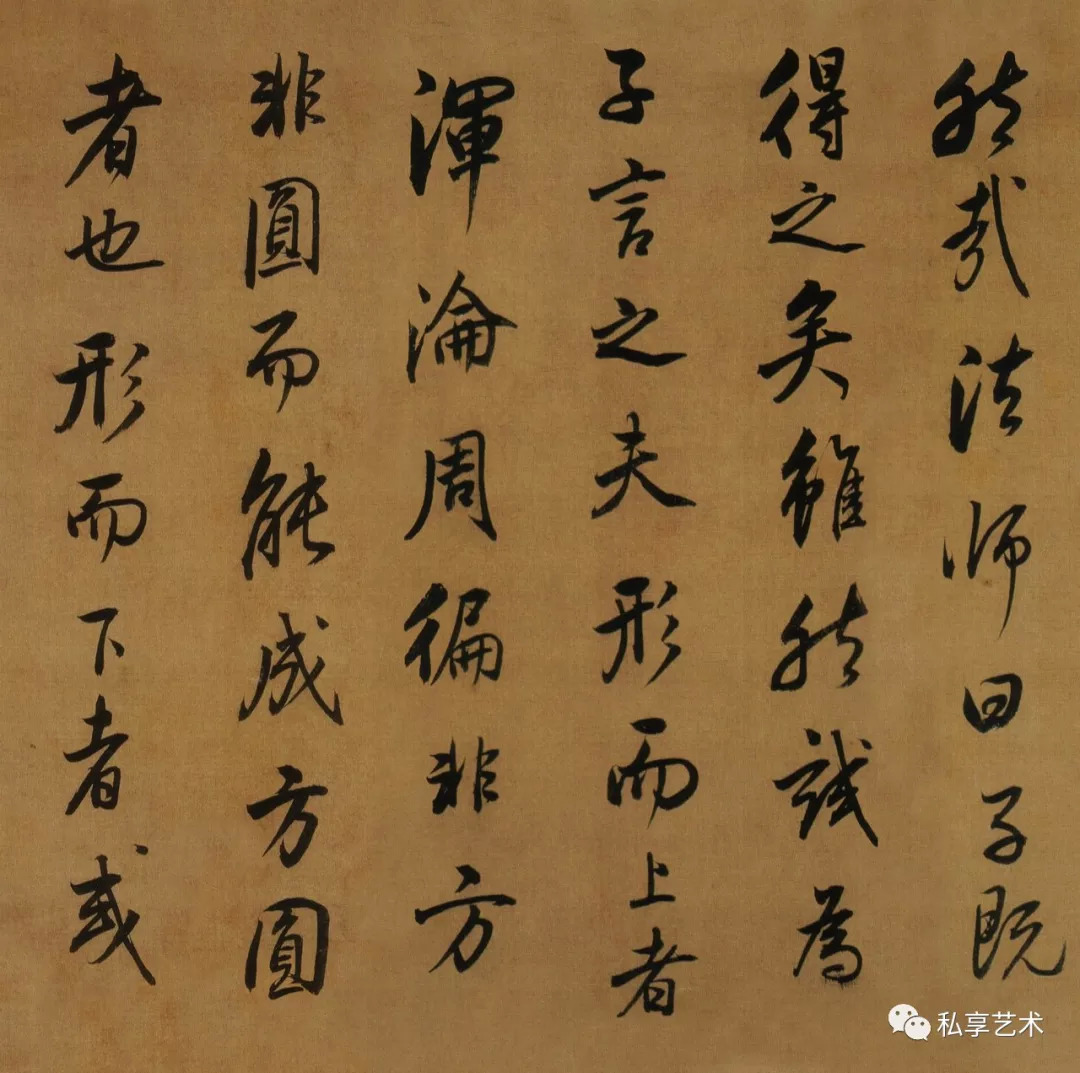 然哉法师曰子既
得之矣雖然試為
子言之夫形而上者
渾淪周徧非方
非圓而能成方圓
者也形而下者或
私享艺术